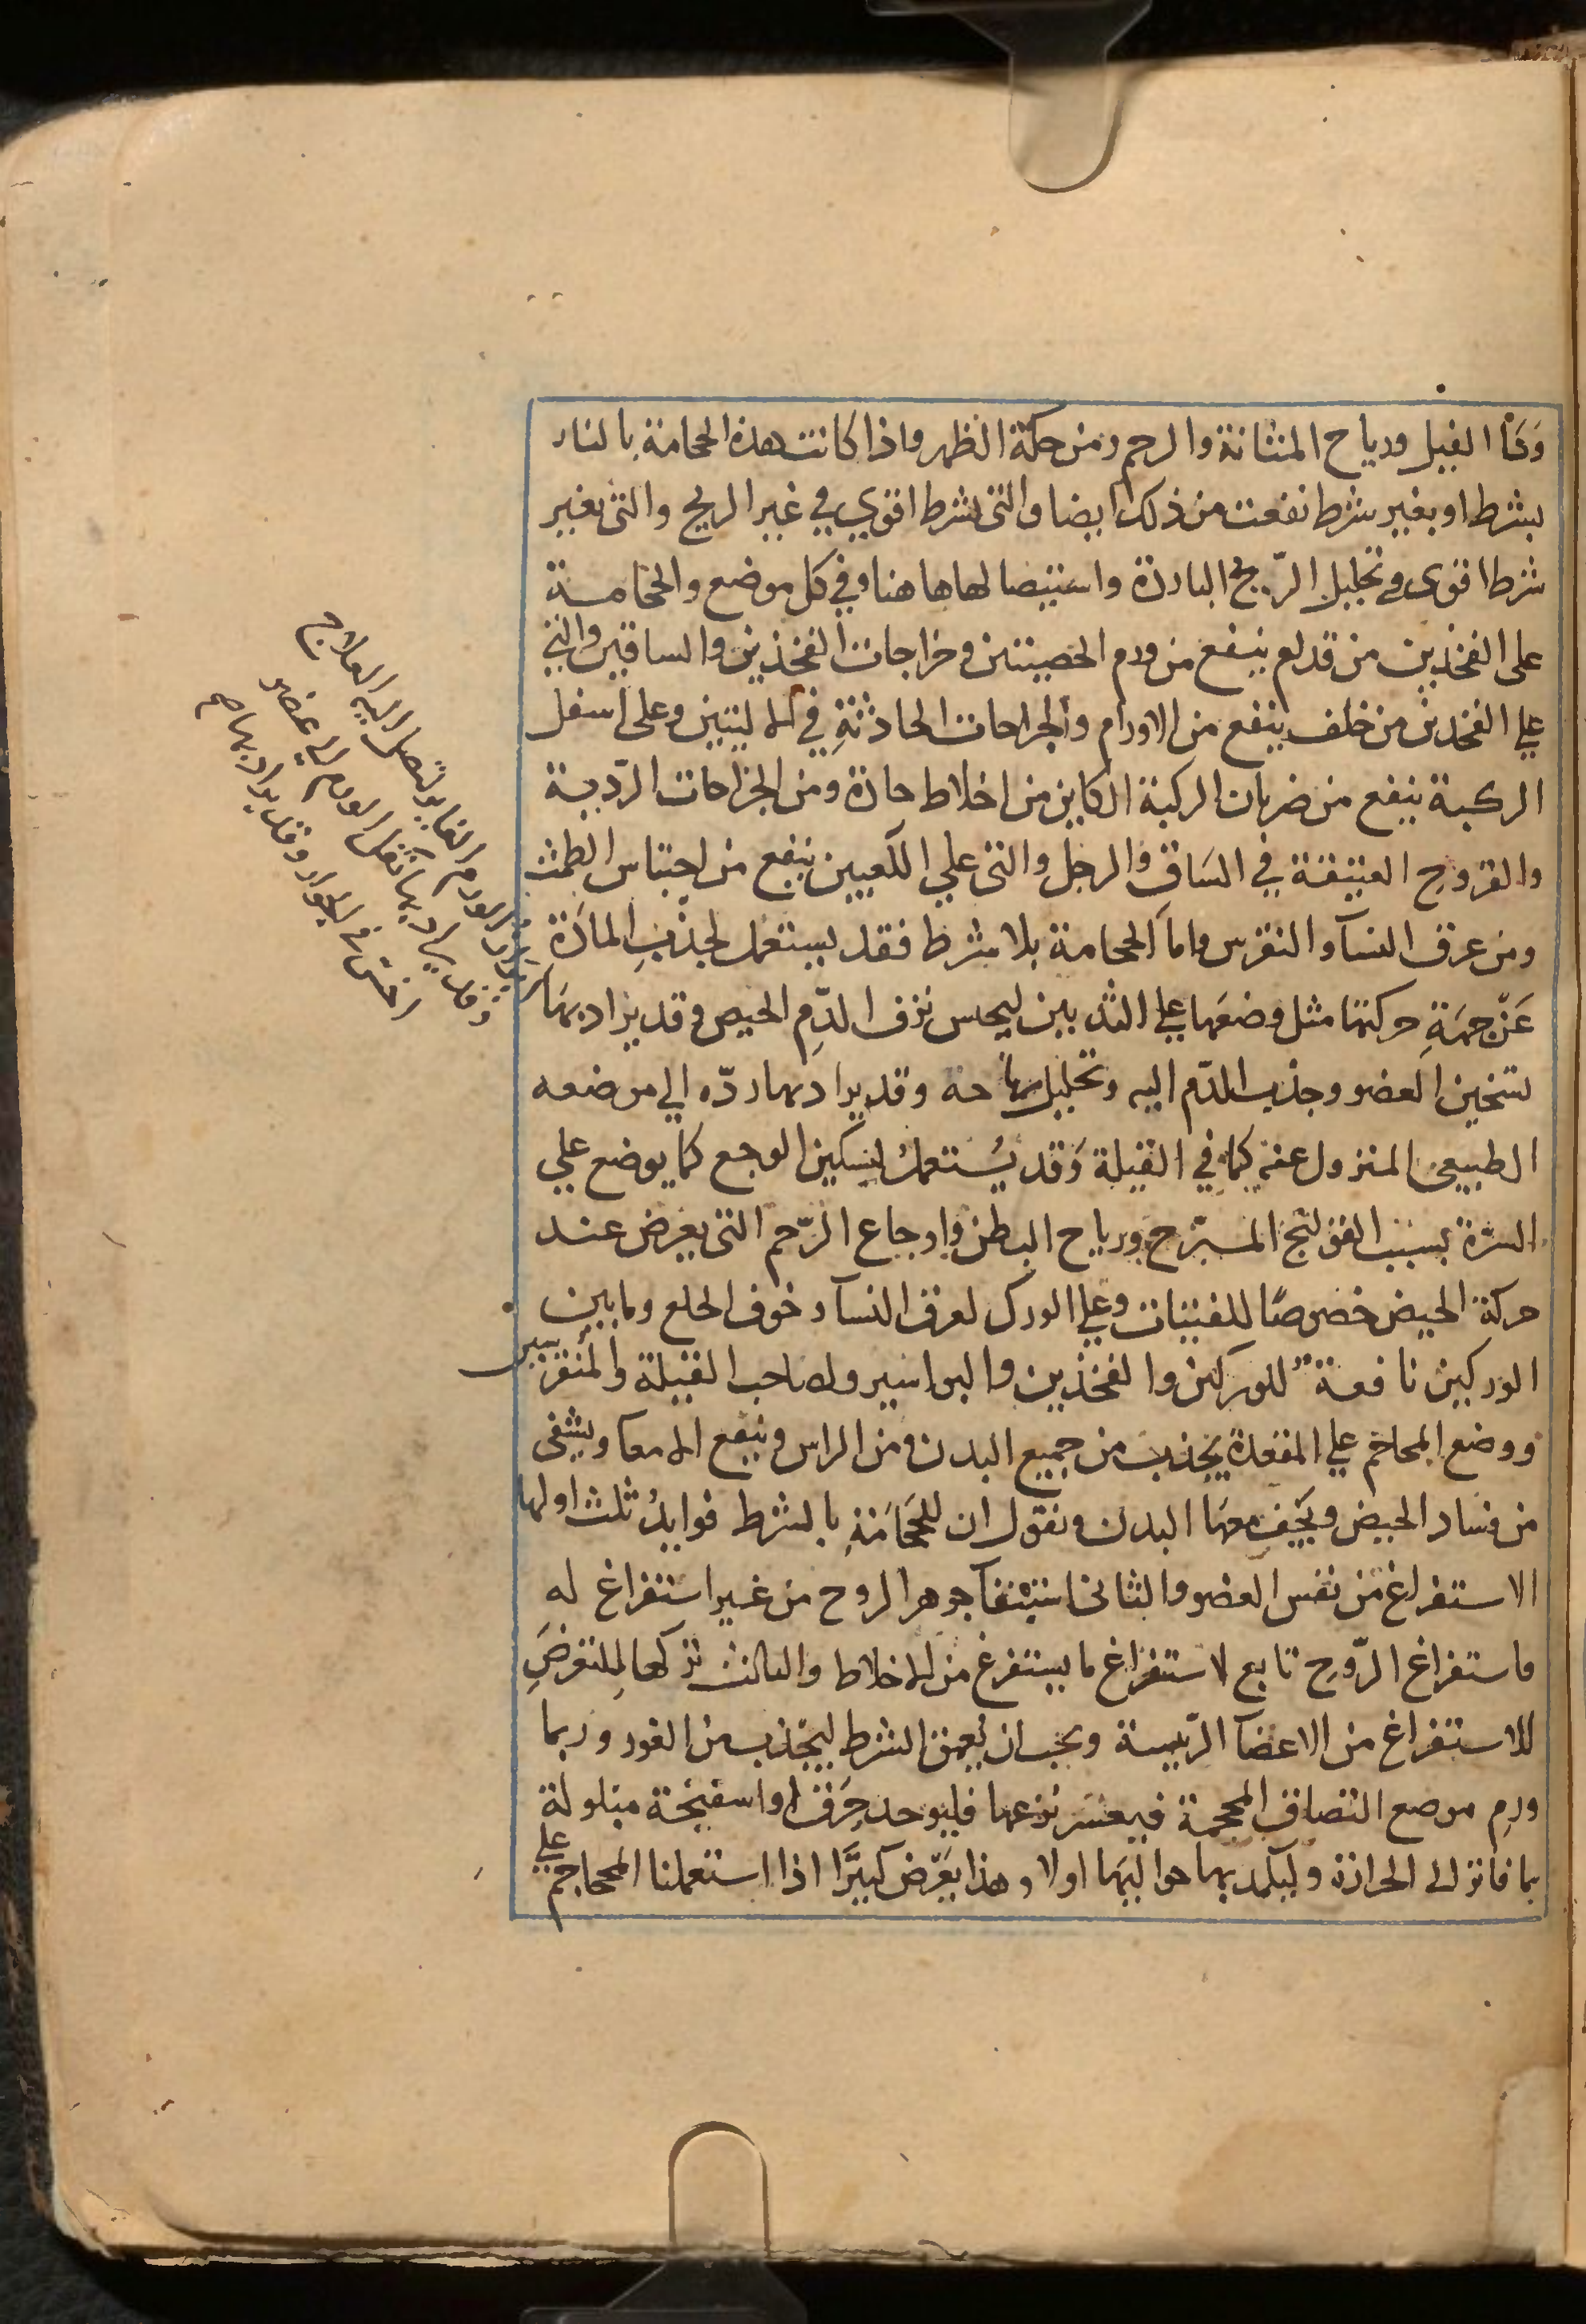 وداء الفيل ورياح المثانة والرحم ومن حكة الظهر واذا كانت هذه الحجامة بالنار
بشرط او بغير شرط نفعت من ذلك ايضا والتى بشرط اقوي في غير الريح والتى بغير
شرط اقوى في تحليل الرّيح الباردة واستيصالها هاهنا وفي كل موضع والحجامة
على الفخذين من قدام ينفع من ورم الخصيتين وخراجات الفخذين والساقين والتي
علي الفخذين من خلف ينفع من الاورام والجراحات الحادثةِ في الاليتين وعلى اسفل
الركبة ينفع من ضربان الركبة الكاين من اخلاط حادة ومن الجراحات الردّية
والقروح العتيقة في السَاق والرجل والتى علي الكعبين ينفع من احتباس الطمث
ومن عرق النسآ والنقرس واماَ الحجامة بلا شرط فقد يستعمل لجذبِ المادَة
عَنْ جهَةِ حركتها مثل وضعَها علي الثديين ليحبس نزف الدّمِ الحيض وقد يراد بهَا
تسخين العضو وجذب الدّم اليه وتحليل رياحه وقد يراد بها ردّه الي موضعه
الطبيعى المنزول عنه كما في القيلة وَقد يُستعملُ لتسكين الوجع كما يوضع علي
السُرّة بسبب القولنج المبرّح ورياح البطن واوجاع الرّحم التى يعرض عند
حركة الحيض خصوصًا للفتيات وعلي الورك لعرق النسآ وخوف الخلع وما بين
الوركين نافعة للوركين والفخذين والبواسير ولصاحب القيلة والمنقرسين
ووضع المحاجم علي المقعدة يجذب من جميع البدن ومن الراس وينفع الامعا ويشفى
من فساد الحيض ويخِف معهَا البدن ونقول ان للحجَامَةِ بالشرط فوايدُ ثلث اولها
الاستفراغ من نفس العضو والثانى استبقآ جوهر الروح من غير استفراغ له
واستفراغ الرّوح تابع لاستفراغ ما يستفرغ من الاخلاط والثالث تركها لِلتعرضَ
للاستفراغ من الاعضآ الرّييسة ويجب ان يُعمق الشرط ليجذب من الغور وربما
ورِم موضع التصاق المحجمة فيعسر نزعها فليوخد خِرَق او اسفنجة مبلولة
بما فاتر الى الحرارة وليكمد بها حواليهَا اولا وهذا يَعْرض كثيرًا اذا استعملنا المحاجم علي
الورم الغاير لتصل اليه العلاج
وقد يراد بها نقل الورم الي عضو
اخس في الجوار وقد يراد بها